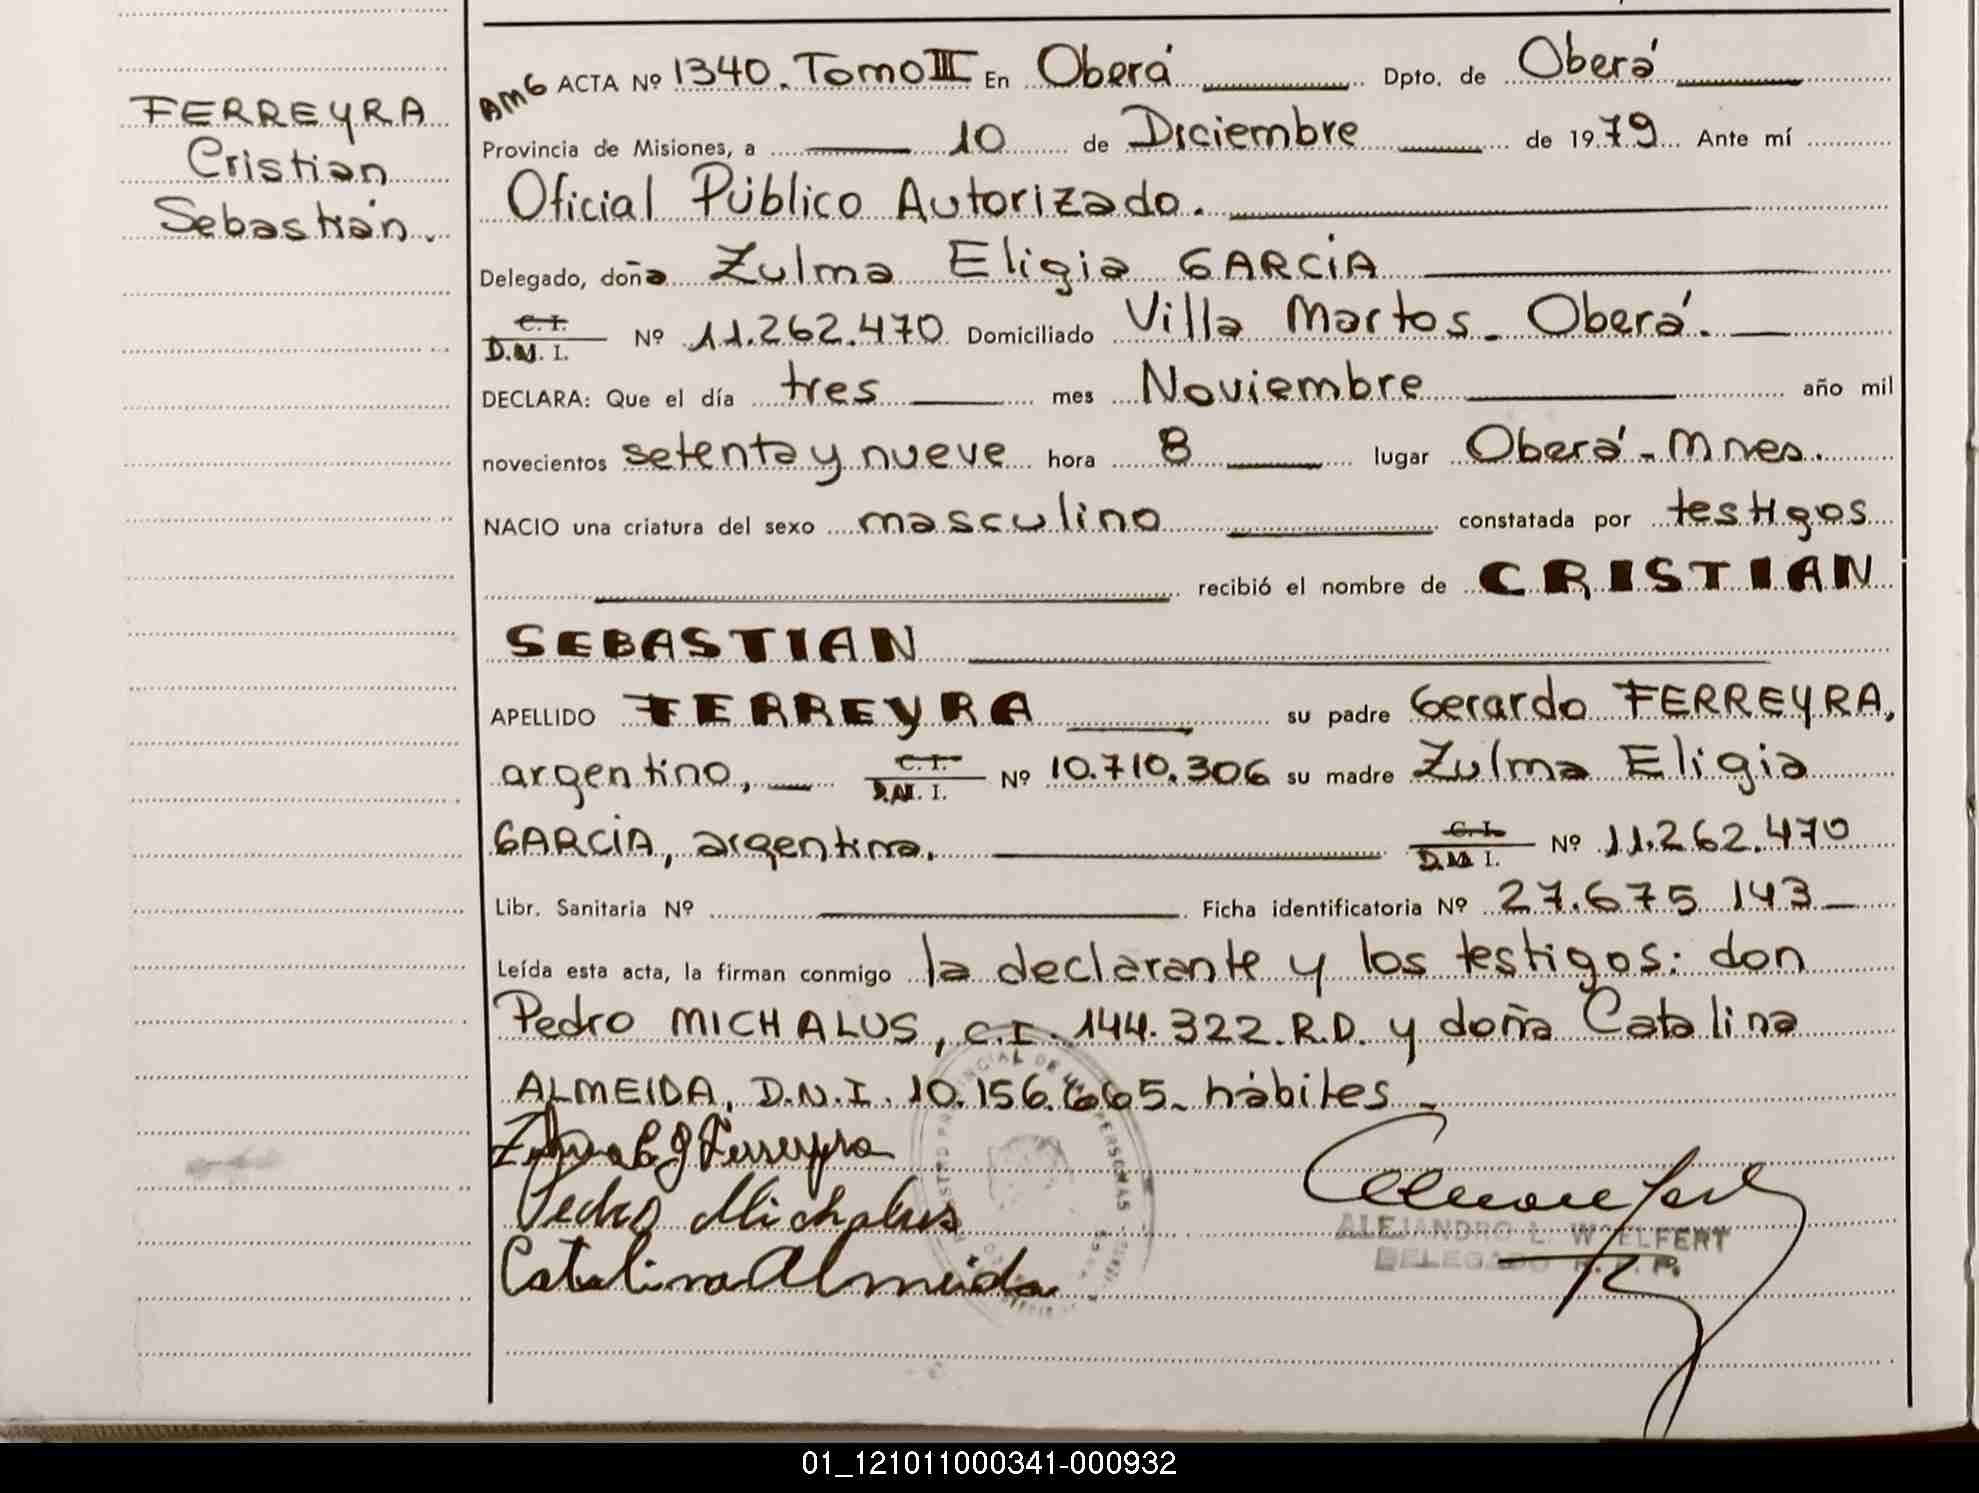 FERREYRA
Cristian
Sebastián.
AMG ACTA Nº 1340. Tomo III En Oberá Dpto. de Oberá
Provincia de Misiones, a 10 de Diciembre de 1979 Ante mí
Oficial Público Autorizado.
Delegado, doña Zulma Eligia GARCIA
C. I.
D.N. I. Nº 11.262.470 Domiciliado Villa Martos - Oberá.
DECLARA: Que el día tres mes Noviembre año mil
novecientos setenta y nueve hora 8 lugar Oberá - Mnes.
NACIO una criatura del sexo masculino constatada por testigos
recibió el nombre de CRISTIAN
SEBASTIAN
APELLIDO FERREYRA su padre Gerardo FERREYRA,
argentino, C. I. D.N. I. Nº 10.710.306 su madre Zulma Eligia
GARCIA, argentina. C. I. D.N. I. Nº 11.262.470
Libr. Sanitaria Nº Ficha identificatoria Nº 27.675 143
Leída esta acta, la firman conmigo la declarante y los testigos: don
Pedro MICHALUS, C.I. 144.322 R.D. y doña Catalina
ALMEIDA, D.N.I. 10.156.665 - hábiles -
Ferreyra
Pedro Michalus
Catalina Almeida
ALEJANDRO L. WOELFERT
DELEGADO R. P. P.
01_121011000341-000932